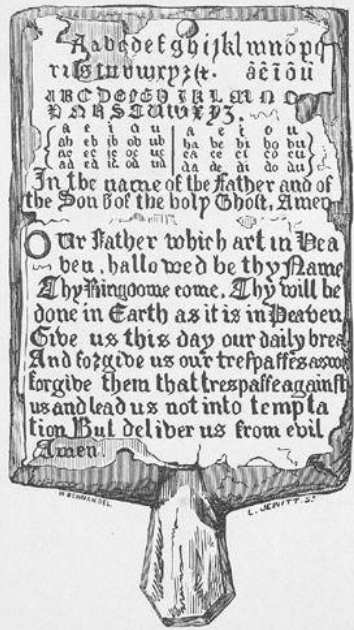 Aabcdefghijklmnopq
rſstuvwxyz&. ãẽĩõũ
ABCDEFGHIJKLMNO
PQRSTUVWXYZ.
a e i o u a e i o u
ab eb ib ob ub ba be bi bo bu
ac ec ic oc uc ca ce ci co cu
ad ed id od ud da de di do du
In the name of the Father and of
the Son & of the holy Ghoſt, Amen
Our Father which art in Hea
ven, hallowed be thy Name
Thy Kingdome come, Thy will be
done in Earth as it is in Heaven
Give us this day our daily brea
And forgive us our treſpaſſes as we
forgive them that trespaſſe againſt
us and lead us not into tempta
tion But deliver us from evil
Amen.
L. JEWITT. Sc